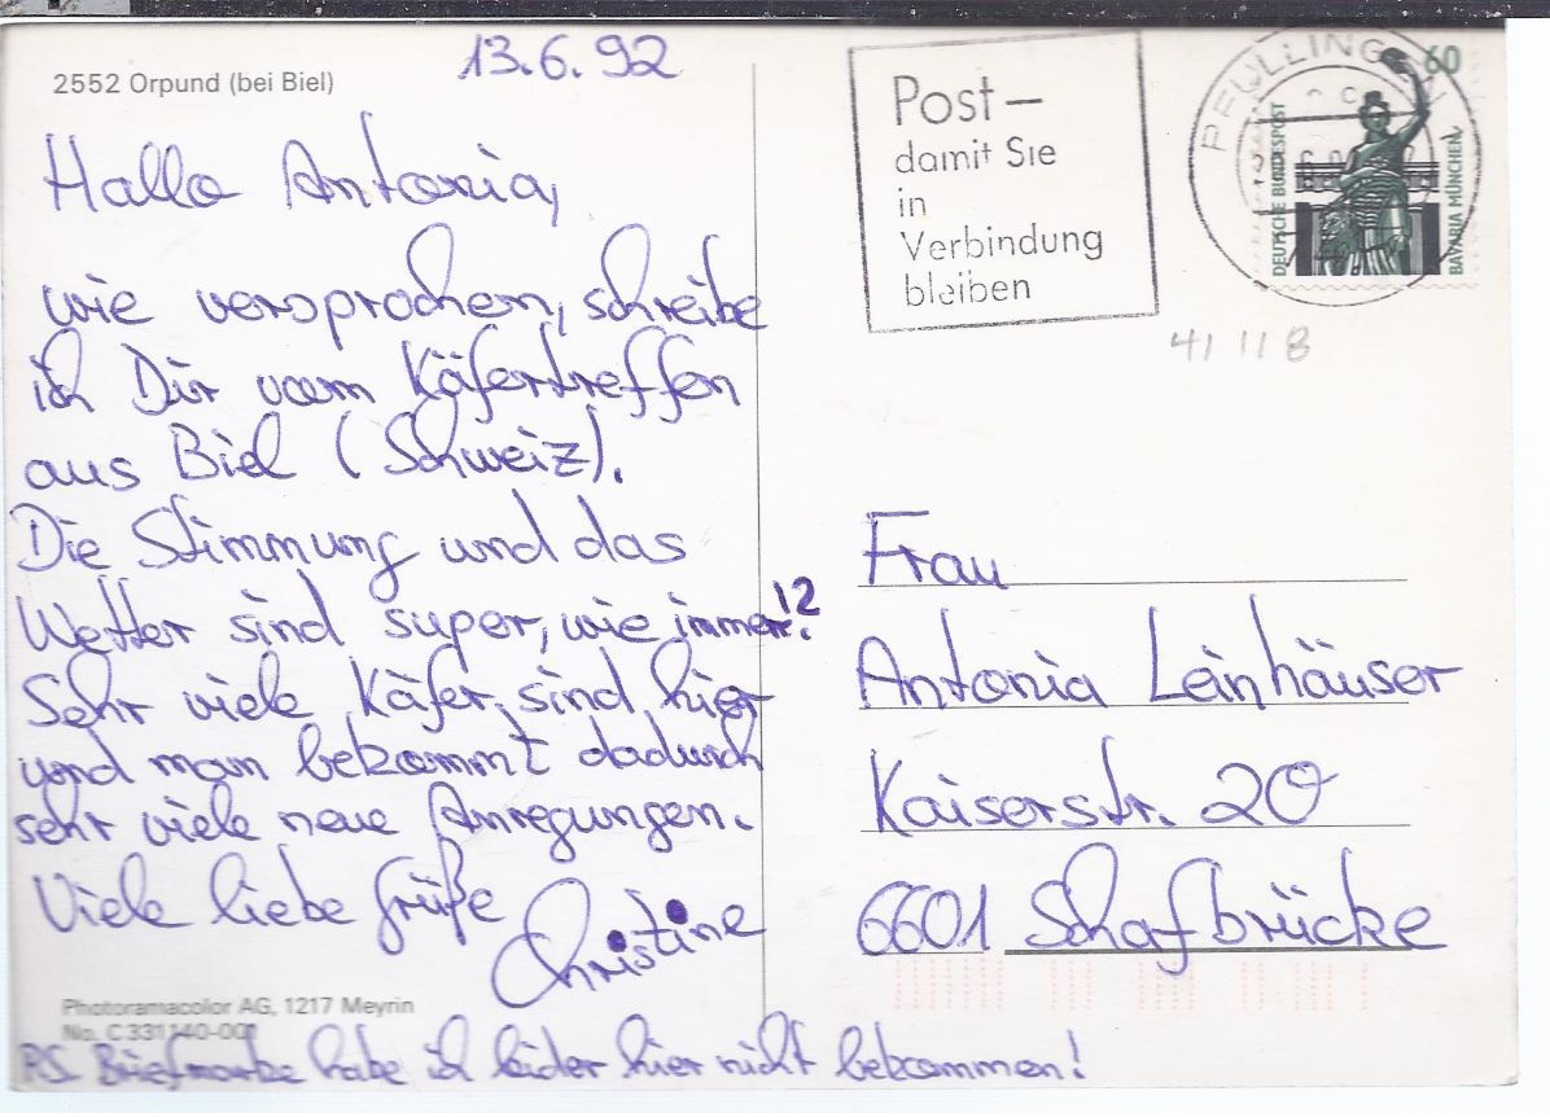 13.6.92
2552 Orpund (bei Biel)
Hallo Antonia,
wie versprochen, schreibe
ich Dir vom Käfertreffen
aus Biel (Schweiz).
Die Stimmung und das
Wetter sind super, wie immer.
12
Sehr viele Käfer sind hier
und man bekommt dadurch
sehr viele neue Anregungen.
Viele liebe Grüße
Christine
Photoramacolor AG, 1217 Meyrin
No. C 331140-001
P.S. Briefmarke habe ich leider hier nicht bekommen!
Post –
damit Sie
in
Verbindung
bleiben
PFULLINGEN
60
DEUTSCHE BUNDESPOST
BAVARIA MÜNCHEN
41 118
Frau
Antonia Leinhäuser
Kaiserstr. 20
6601 Schafbrücke